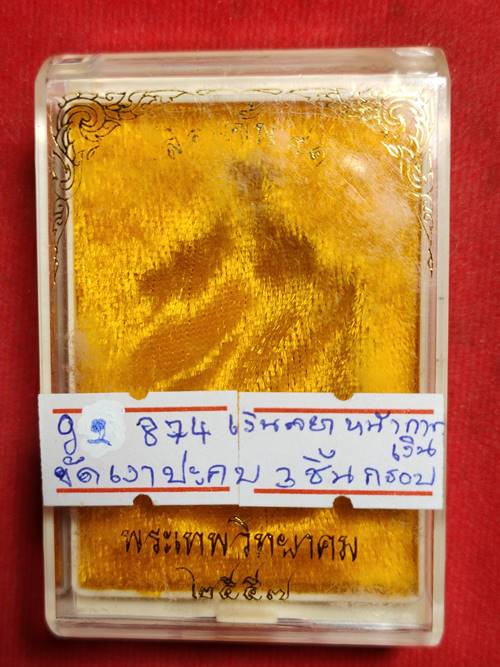 92 874 เงินลยา หน้ากาก
เงิน
ขัดเงาปะคบ 3 ชิ้น กรอบ
พระเทพวิทยาคม
๒๕๕๗